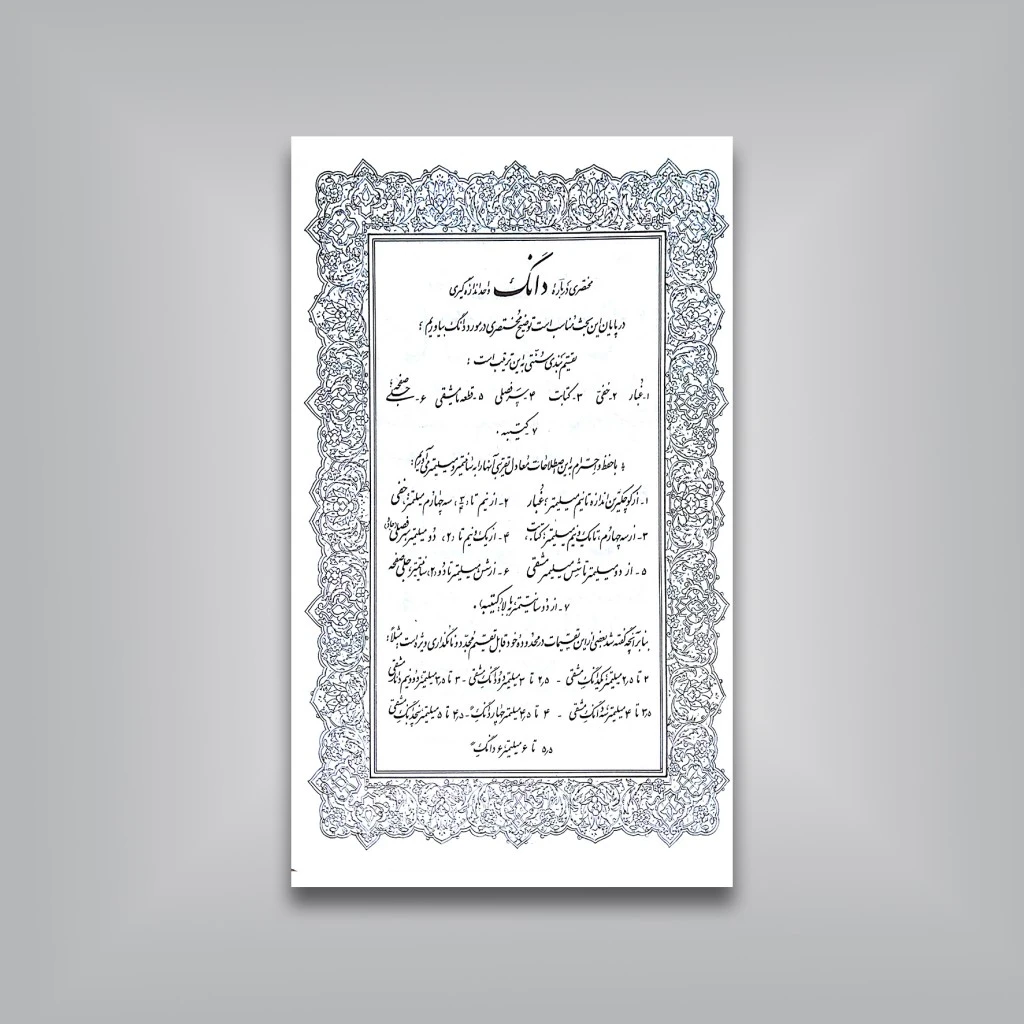 مختصری درباره دانگ واحد اندازه گیری
در پایان این بحث مناسب است توضیح مختصری در مورد دانگ بیاوریم :
تقسیم بندی سنتی به این ترتیب است :
۱- غبار ۲- خفی ۳- کتابت ۴- سرفصلی ۵- قطعه یا مشقی ۶- جلی
۷- کتیبه .
با حفظ و احترام به این اصطلاحات معادل تقریبی آنها را به سانتیمتر و میلیمتر می آوریم :
۱- از کوچکترین اندازه تا نیم میلیمتر ؛ غبار ۲- از نیم تا سه چهارم میلیمتر ؛ خفی
۳- از سه چهارم تا یک و نیم میلیمتر ؛ کتابت ۴- از یک و نیم تا ۲، دو میلیمتر سرفصلی
۵- از دو میلیمتر تا شش میلیمتر مشقی ۶- از شش میلیمتر تا دو ،۲ سانتیمتر جلی
۷- از دو سانتیمتر به بالا ؛ کتیبه .
بنا بر آنچه گفته شد بعضی از این تقسیمات در محدوده خود قابل تقسیم مجدد و نامگذاری ویژه است مثلاً :
۲ تا ۲٫۵ میلیمتر یکدانگ مشقی - ۲٫۵ تا ۳ میلیمتر دو دانگ مشقی - ۳ تا ۳٫۵ میلیمتر دو و نیم دانگ مشقی
۳٫۵ تا ۴ میلیمتر دانگ مشقی - ۴ تا ۴٫۵ میلیمتر چهار دانگ - ۴٫۵ تا ۵ میلیمتر پنجدانگ مشقی
۵٫۵ تا ۶ میلیمتر ۶ دانگ